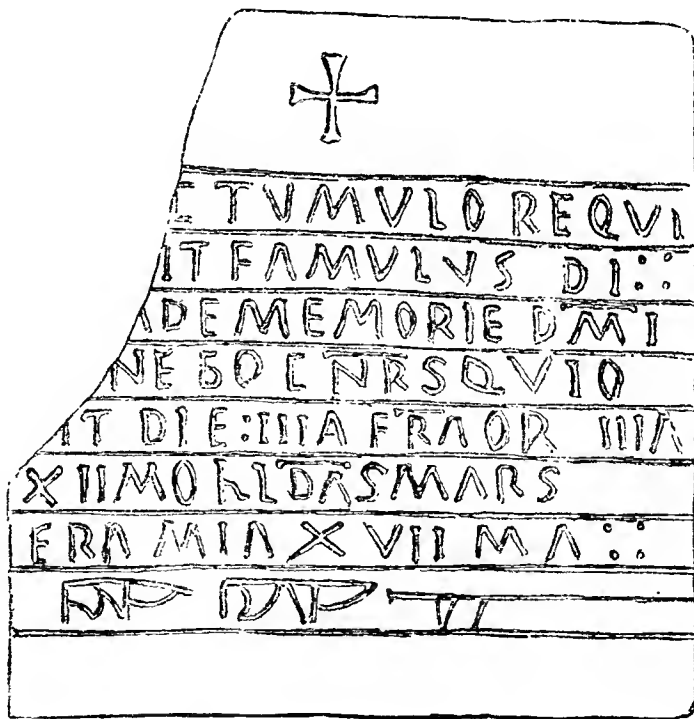 C TVMVLO REQVI
IT FAMVLVS DI
ADE MEMORIE DMI
NEGO ENRSQVIO
IT DIE:IIIA FRA OR IIIA
XII MO KLDAS MARS
ERA MIA XVII MA